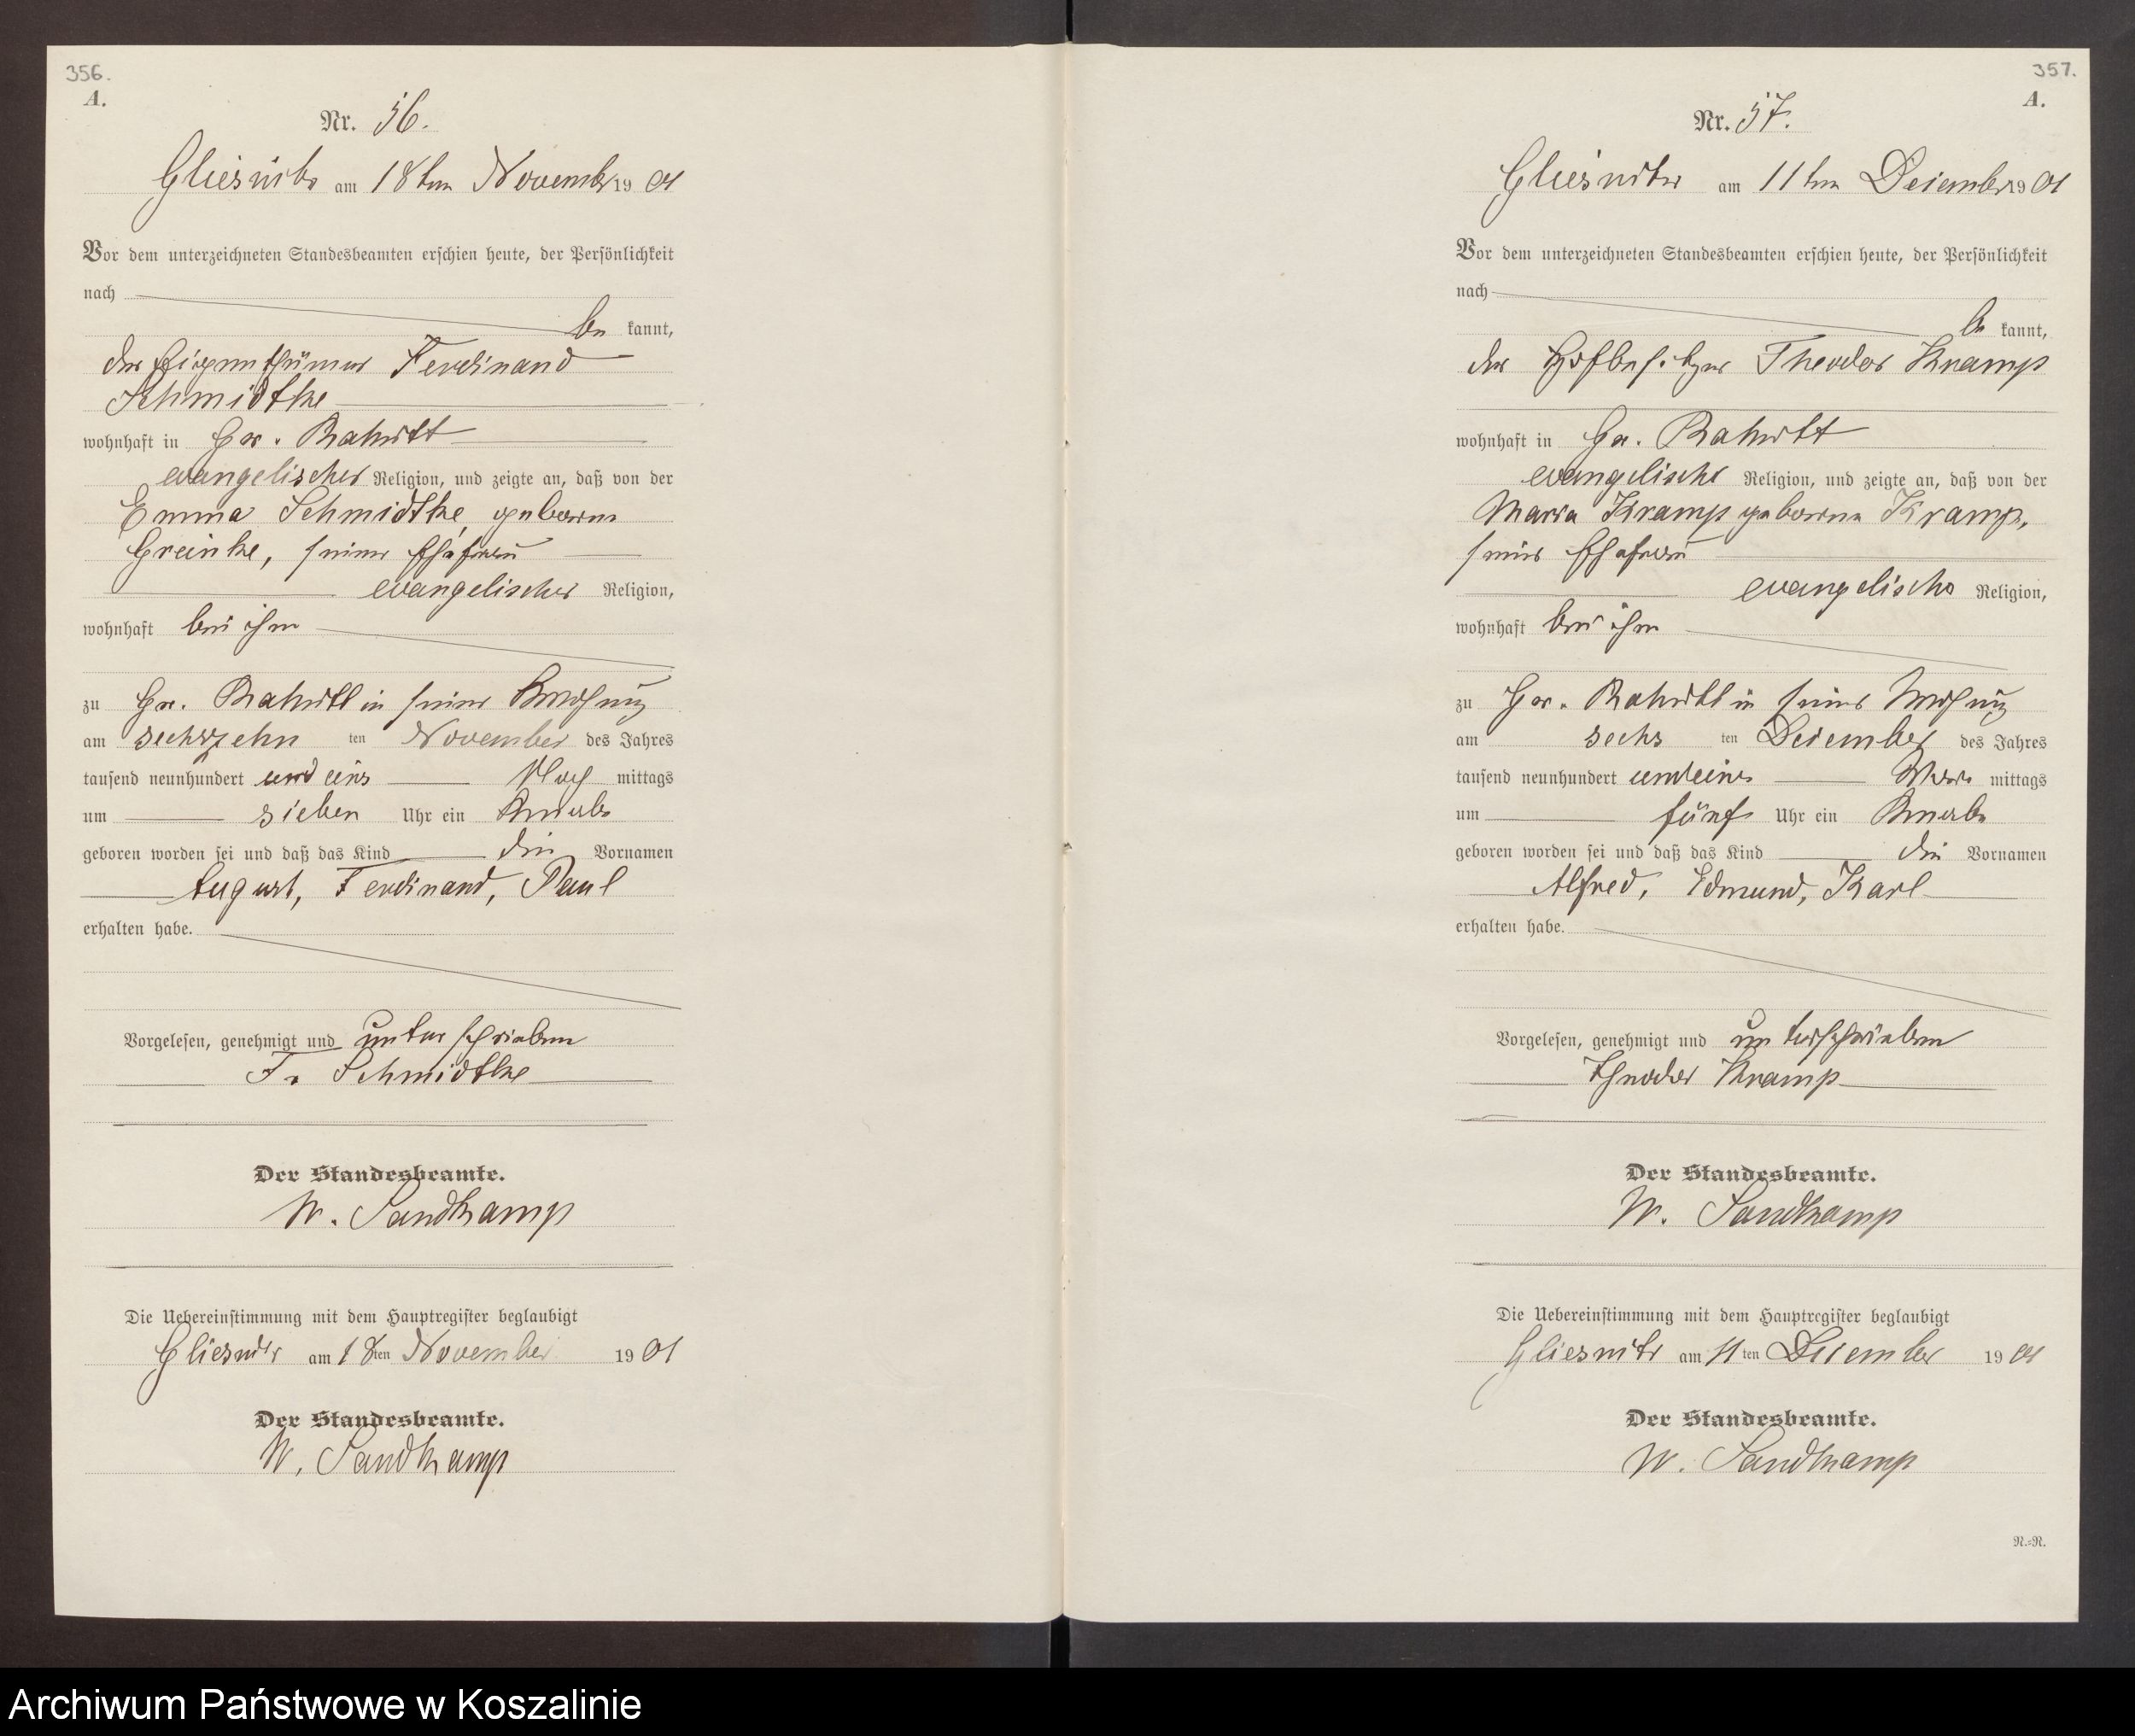 356.
A.
Nr. 56.
Gliesnitz am 18ten November 1901
Vor dem unterzeichneten Standesbeamten erschien heute, der Persönlichkeit
nach
be kannt,
der Eigenthümer Ferdinand
Schmidtke
wohnhaft in Gr. Rakitt
evangelischer Religion, und zeigte an, daß von der
Emma Schmidtke, geborene
Greinke, seiner Ehefrau
evangelischer Religion,
wohnhaft bei ihm
zu Gr. Rakitt in seiner
am sechszehn ten November des Jahres
tausend neunhundert und eins Nach mittags
um sieben Uhr ein Knabe
geboren worden sei und daß das Kind die Vornamen
August, Ferdinand, Paul
erhalten habe.
Vorgelesen, genehmigt und unterschrieben
F. Schmidtke
Der Standesbeamte.
W. Sandkamp
Die Uebereinstimmung mit dem Hauptregister beglaubigt
Gliesnitz am 18ten November 1901
Der Standesbeamte.
W. Sandkamp
357.
A.
Nr. 57.
Gliesnitz am 11ten Dezember 1901
Vor dem unterzeichneten Standesbeamten erschien heute, der Persönlichkeit
nach
be kannt,
der Hofbesitzer Theodor Kramp
wohnhaft in Gr. Rakitt
evangelischer Religion, und zeigte an, daß von der
Maria Kramp geborene Kramp,
seiner Ehefrau
evangelischer Religion,
wohnhaft bei ihm
zu Gr. Rakitt in seiner Wohnung
am sechs ten Dezember des Jahres
tausend neunhundert und eins mittags
um fünf Uhr ein Knabe
geboren worden sei und daß das Kind die Vornamen
Alfred, Edmund, Karl
erhalten habe.
Vorgelesen, genehmigt und unterschrieben
Theodor Kramp
Der Standesbeamte.
W. Sandkamp
Die Uebereinstimmung mit dem Hauptregister beglaubigt
Gliesnitz am 11ten Dezember 1901
Der Standesbeamte.
W. Sandkamp
N.=N.
Archiwum Państwowe w Koszalinie